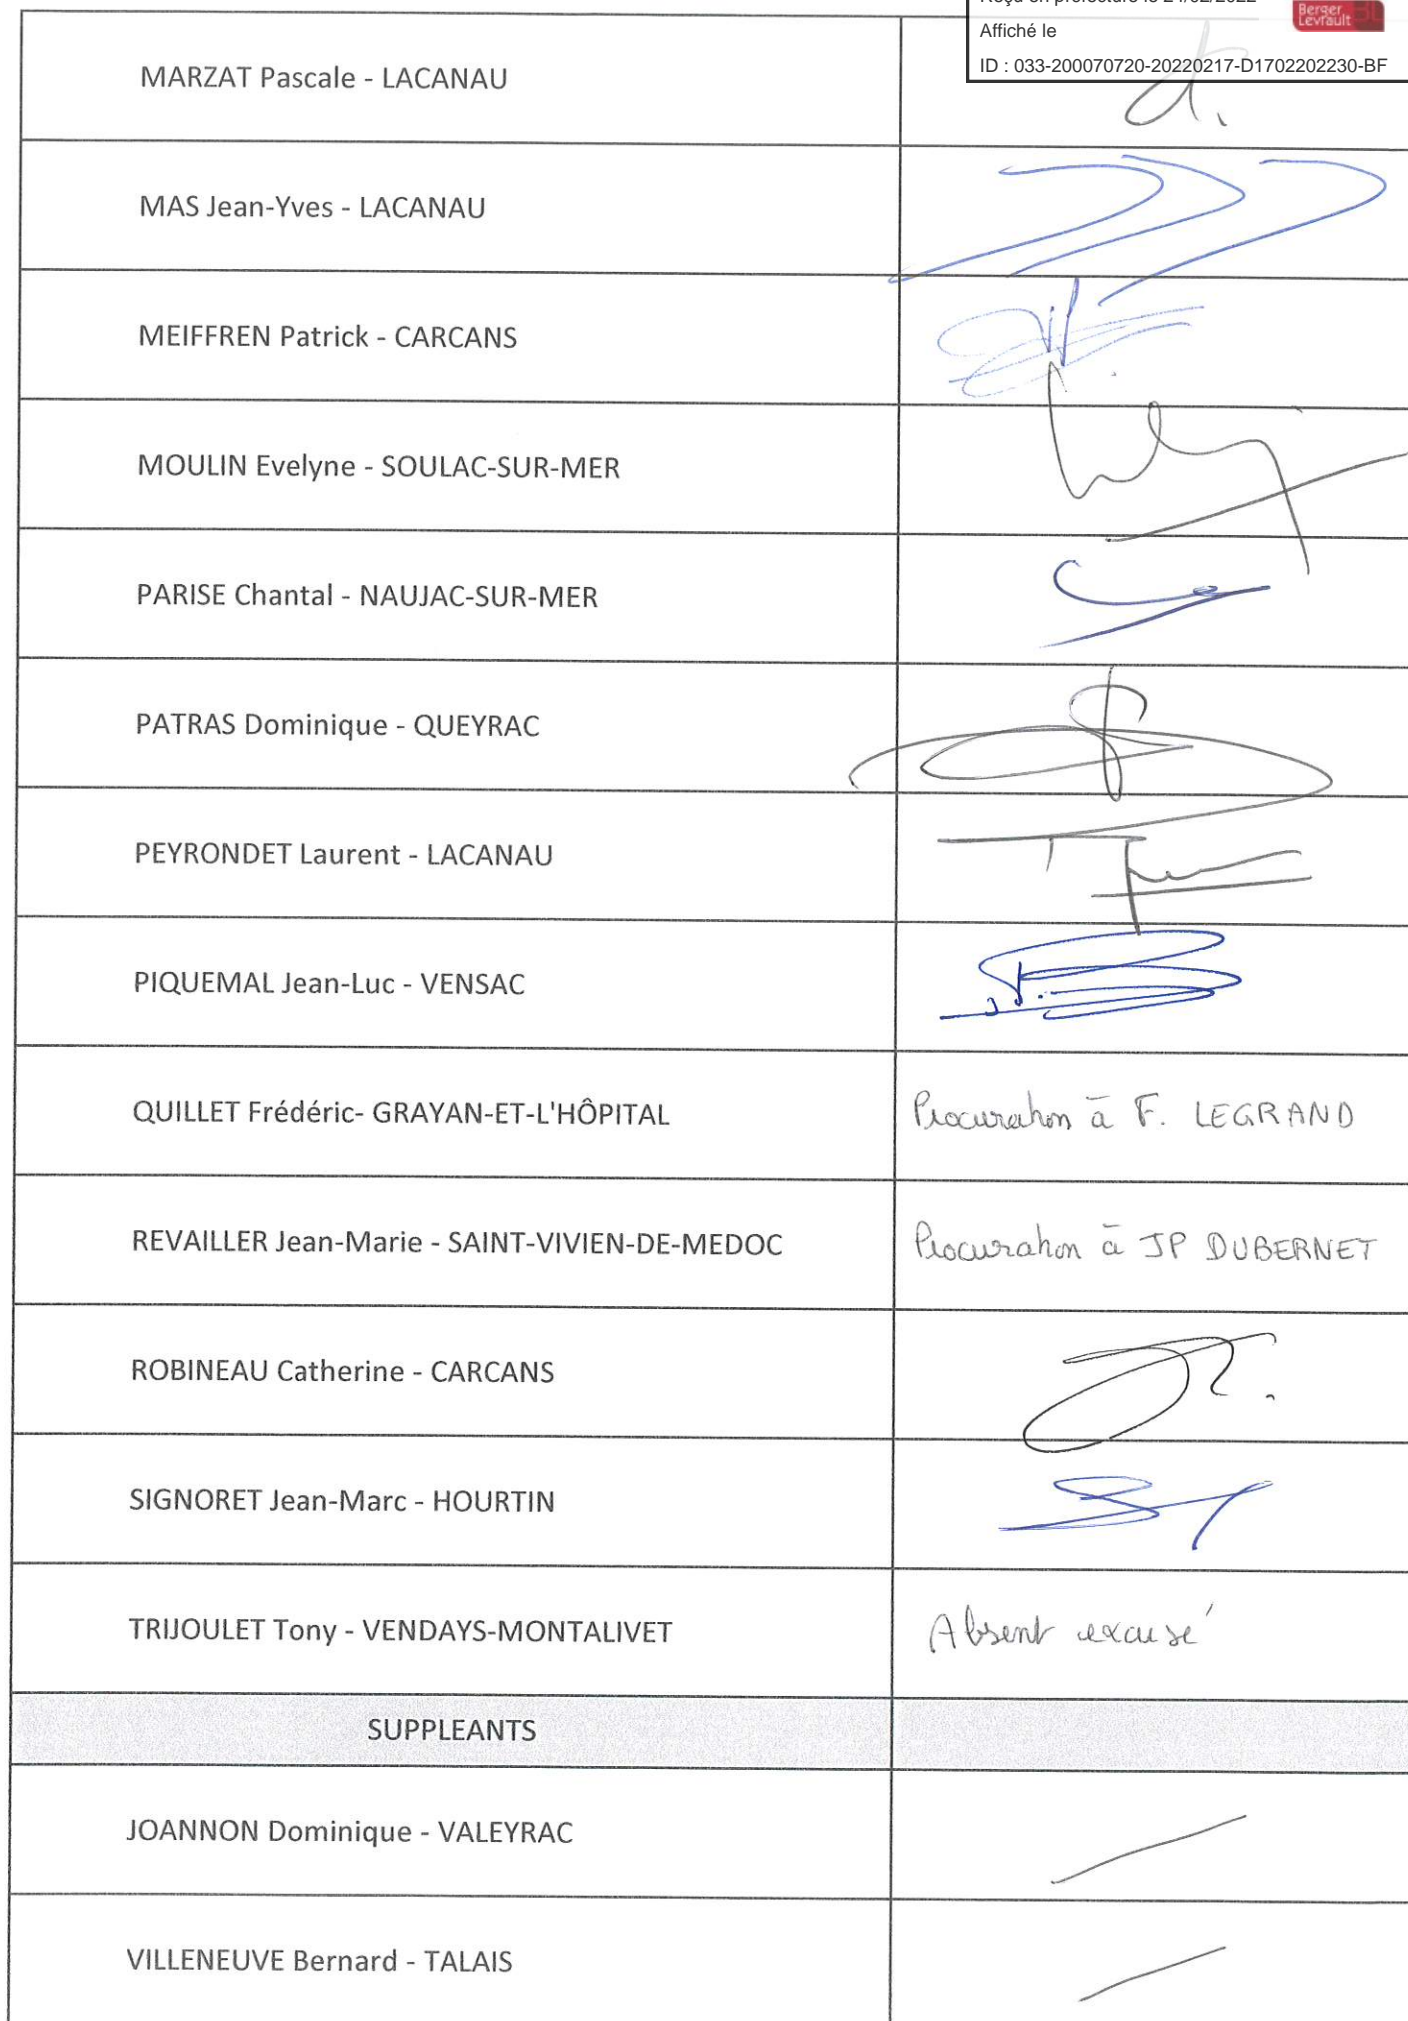 Affiché le
Berger
Levrault
ID : 033-200070720-20220217-D1702202230-BF
MARZAT Pascale - LACANAU
MAS Jean-Yves - LACANAU
MEIFFREN Patrick - CARCANS
MOULIN Evelyne - SOULAC-SUR-MER
PARISE Chantal - NAUJAC-SUR-MER
PATRAS Dominique - QUEYRAC
PEYRONDET Laurent - LACANAU
PIQUEMAL Jean-Luc - VENSAC
QUILLET Frédéric- GRAYAN-ET-L'HÔPITAL Procuration à F. LEGRAND
REVAILLER Jean-Marie - SAINT-VIVIEN-DE-MEDOC Procuration à JP DUBERNET
ROBINEAU Catherine - CARCANS
SIGNORET Jean-Marc - HOURTIN
TRIJOULET Tony - VENDAYS-MONTALIVET Absent excusé
SUPPLEANTS
JOANNON Dominique - VALEYRAC
VILLENEUVE Bernard - TALAIS